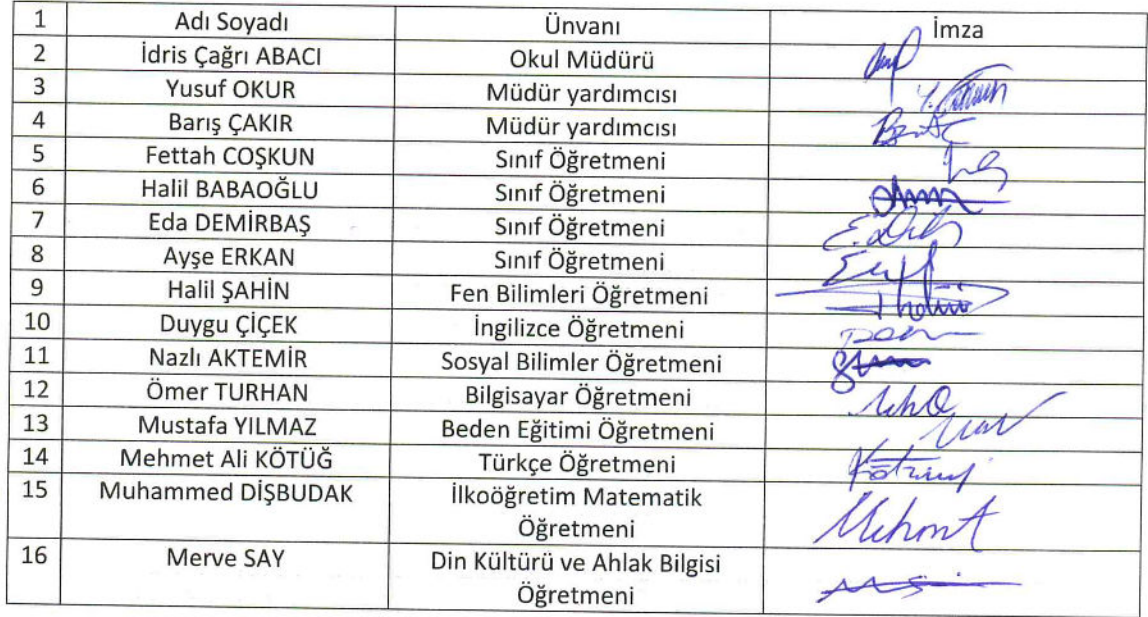 1 Adı Soyadı Ünvanı İmza
2 İdris Çağrı ABACI Okul Müdürü
3 Yusuf OKUR Müdür yardımcısı
4 Barış ÇAKIR Müdür yardımcısı
5 Fettah COŞKUN Sınıf Öğretmeni
6 Halil BABAOĞLU Sınıf Öğretmeni
7 Eda DEMİRBAŞ Sınıf Öğretmeni
8 Ayşe ERKAN Sınıf Öğretmeni
9 Halil ŞAHİN Fen Bilimleri Öğretmeni
10 Duygu ÇİÇEK İngilizce Öğretmeni
11 Nazlı AKTEMİR Sosyal Bilimler Öğretmeni
12 Ömer TURHAN Bilgisayar Öğretmeni
13 Mustafa YILMAZ Beden Eğitimi Öğretmeni
14 Mehmet Ali KÖTÜĞ Türkçe Öğretmeni
15 Muhammed DİŞBUDAK İlkoöğretim Matematik
Öğretmeni
16 Merve SAY Din Kültürü ve Ahlak Bilgisi
Öğretmeni